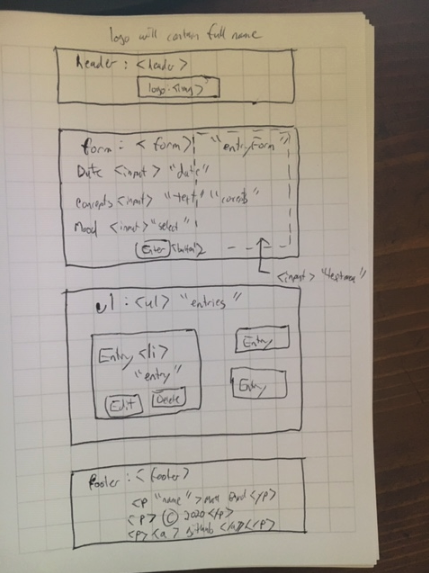 logo will contain full name
header : <header>
logo <img>
form : < form> "entryForm"
Date <input> "date"
concepts <input> "text"
Mood <input> "select"
Enter <button>
<input> "textarea"
ul : <ul> "entries"
Entry <li>
"entry"
Edit Delete
Entry
Entry
footer : < footer>
<p "name" > </p>
<p> © 2020 </p>
<p> <a> github </a> </p>